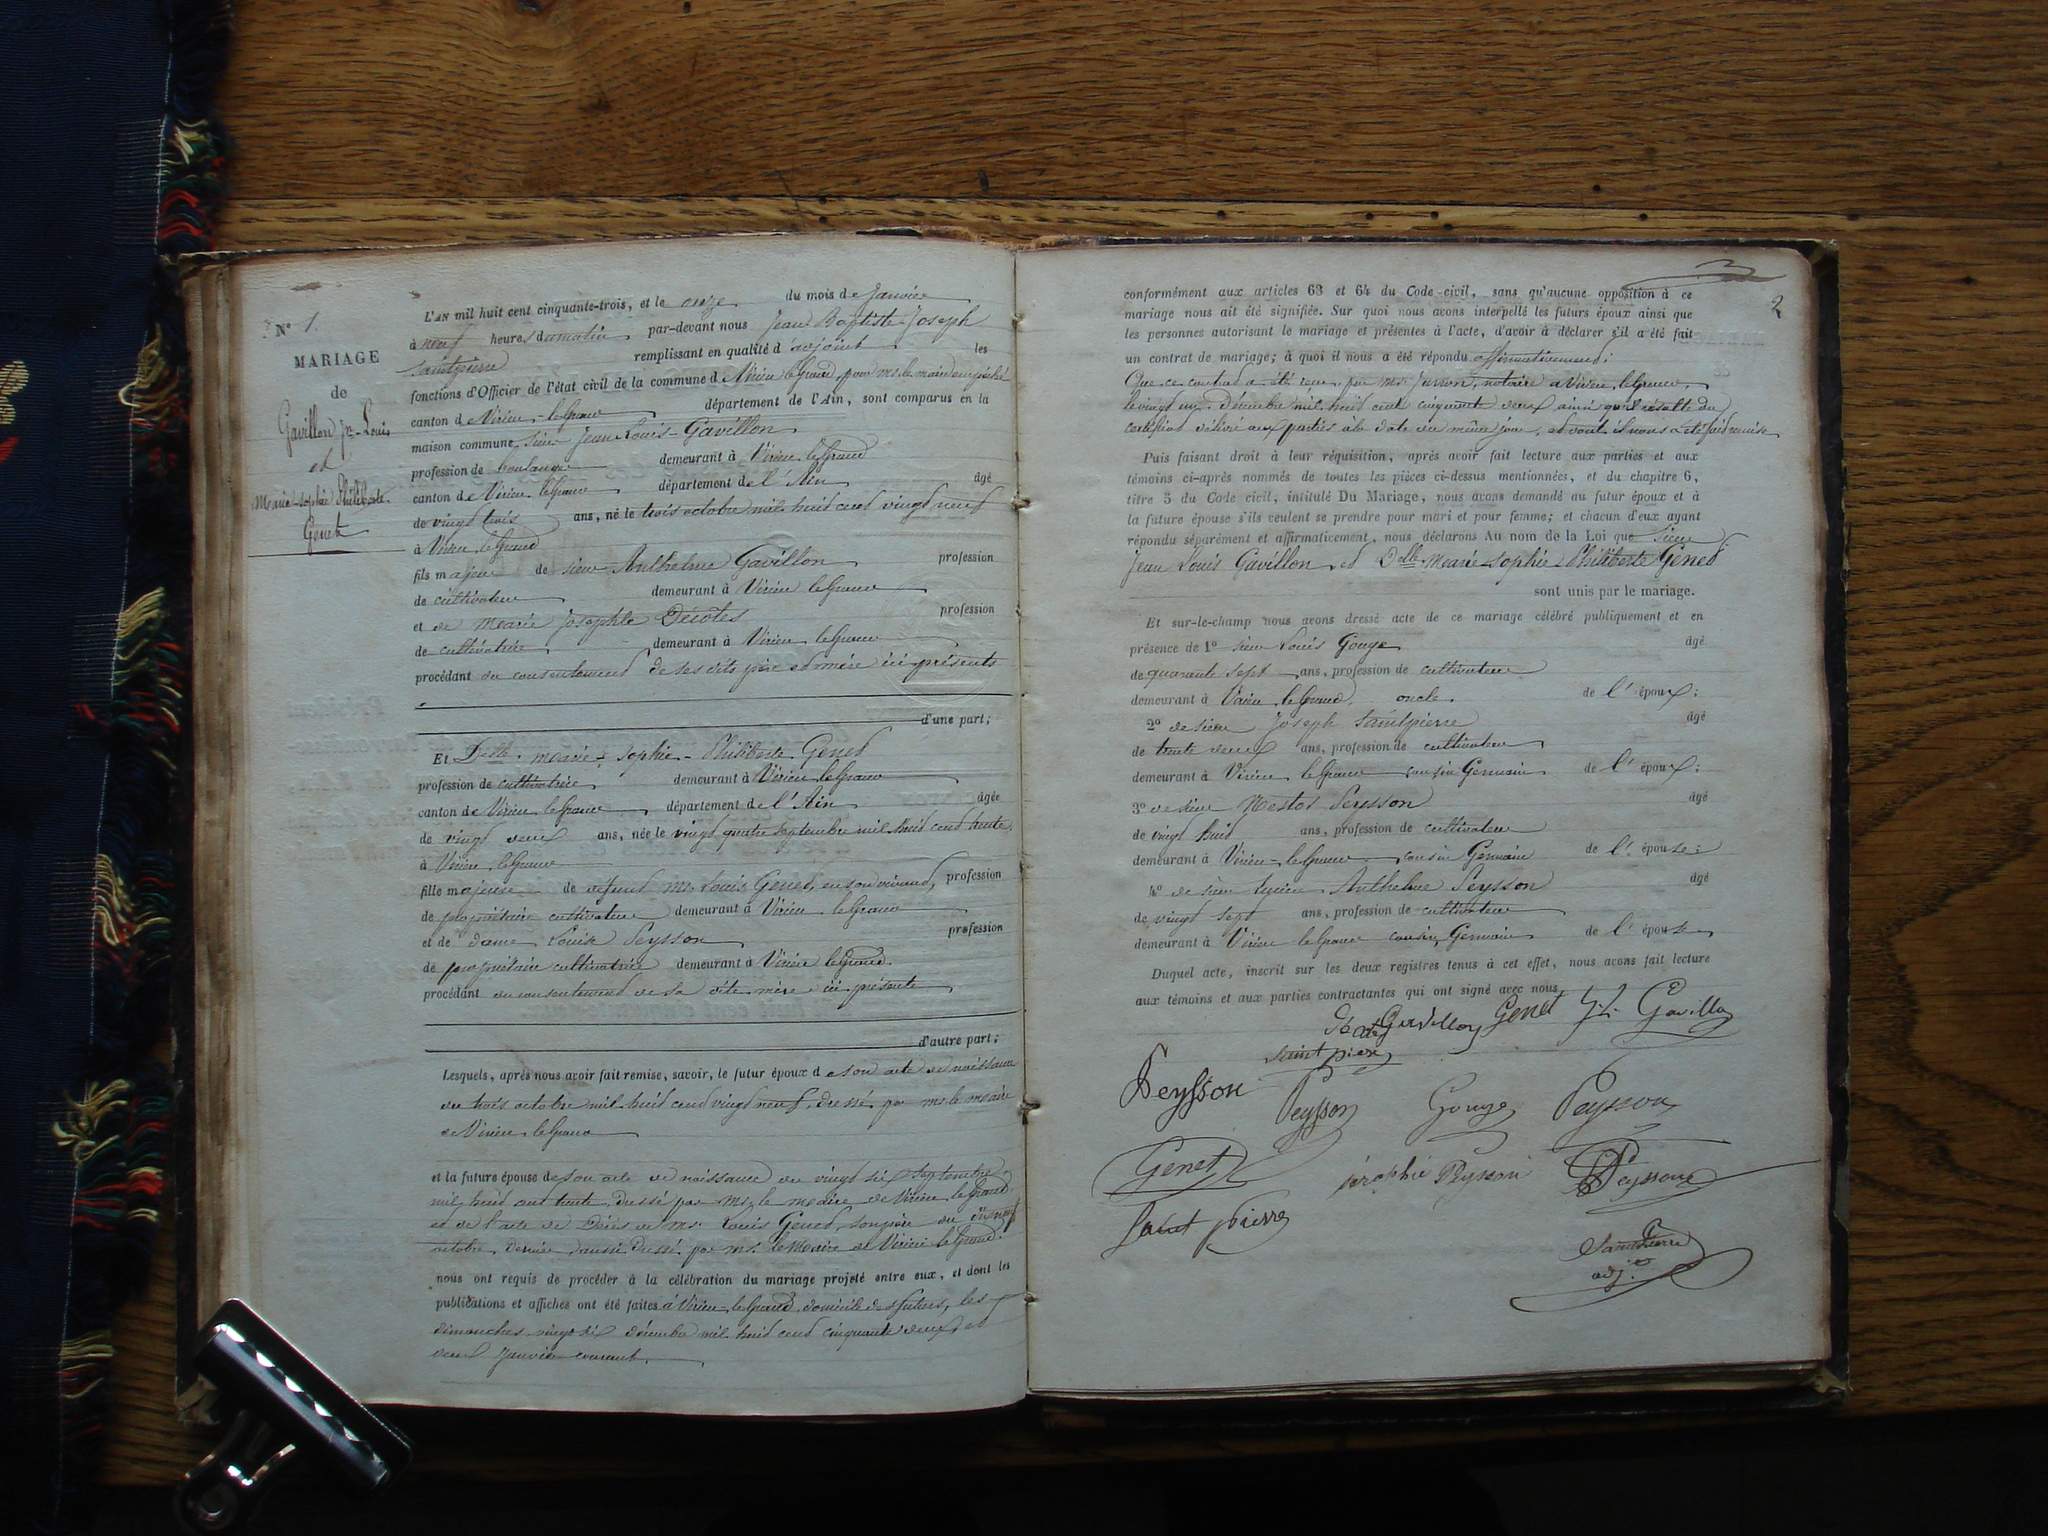 N° 1.
MARIAGE
de
Gavillon jn-Louis
et
Marie-Sophie Philiberte
Genet
L'AN mil huit cent cinquante-trois, et le onze du mois de Janvier
à neuf heures du matin par-devant nous Jean Baptiste Joseph
Saintpierre remplissant en qualité d'adjoint les
fonctions d'Officier de l'état civil de la commune de Virieu le Grand, pour mr. le maire empêché
canton de Virieu-le-Grand département de l'Ain, sont comparus en la
maison commune sieur Jean Louis Gavillon
profession de boulanger demeurant à Virieu le Grand
canton de Virieu le Grand département de l'Ain âgé
de vingt trois ans, né le trois octobre mil huit cent vingt neuf
à Virieu le Grand
fils majeur de sieur Anthelme Gavillon profession
de cultivateur demeurant à Virieu le Grand
et de Marie Josephte Décotes profession
de cultivatrice demeurant à Virieu le Grand
procédant du consentement de ses dits père et mère ici présents
d'une part;
Et Delle. Marie-Sophie-Philiberte Genet
profession de cultivatrice demeurant à Virieu le Grand
canton de Virieu le Grand département de l'Ain âgée
de vingt deux ans, née le vingt quatre septembre mil huit cent trente
à Virieu le Grand
fille majeure de défunt mr. Louis Genet, en son vivant, profession
de propriétaire cultivateur demeurant à Virieu le Grand
et de dame Louise Peysson profession
de propriétaire cultivatrice demeurant à Virieu le Grand
procédant du consentement de sa dite mère ici présente
d'autre part;
Lesquels, après nous avoir fait remise, savoir, le futur époux de son acte de naissance
du trois octobre mil huit cent vingt neuf, dressé par mr. le maire
de Virieu le Grand
et la future épouse de son acte de naissance du vingt six septembre
mil huit cent trente, dressé par mr. le maire de Virieu le Grand
et de l'acte de décès de mr. Louis Genet, son père du dix neuf
octobre dernier, aussi dressé par mr. le Maire de Virieu le Grand.
nous ont requis de procéder à la célébration du mariage projeté entre eux, et dont les
publications et affiches ont été faites à Virieu-le-Grand, domicile des futurs, les
dimanches vingt six décembre mil huit cent cinquante deux, et
deux Janvier courant.
2
conformément aux articles 63 et 64 du Code civil, sans qu'aucune opposition à ce
mariage nous ait été signifiée. Sur quoi nous avons interpellé les futurs époux ainsi que
les personnes autorisant le mariage et présentes à l'acte, d'avoir à déclarer s'il a été fait
un contrat de mariage; à quoi il nous a été répondu affirmativement;
Que ce contrat a été reçu par Me. notaire à Virieu le Grand,
le vingt un décembre mil huit cent cinquante deux ainsi qu'il résulte du
certificat délivré aux parties à la date du même jour, et dont il nous a été fait remise
Puis faisant droit à leur réquisition, après avoir fait lecture aux parties et aux
témoins ci-après nommés de toutes les pièces ci-dessus mentionnées, et du chapitre 6,
titre 5 du Code civil, intitulé Du Mariage, nous avons demandé au futur époux et à
la future épouse s'ils veulent se prendre pour mari et pour femme; et chacun d'eux ayant
répondu séparément et affirmativement, nous déclarons Au nom de la Loi que sieur
Jean Louis Gavillon, et Delle. Marie-Sophie-Philiberte Genet
sont unis par le mariage.
Et sur-le-champ nous avons dressé acte de ce mariage célébré publiquement et en
présence de 1° sieur Louis Gouge âgé
de quarante sept ans, profession de cultivateur
demeurant à Virieu le Grand, oncle de l'époux;
2° de sieur Joseph Saintpierre âgé
de trente deux ans, profession de cultivateur
demeurant à Virieu le Grand cousin Germain de l'époux;
3° de sieur Nestor Peysson âgé
de vingt huit ans, profession de cultivateur
demeurant à Virieu-le-Grand cousin Germain de l'épouse;
4° de sieur Lucien Anthelme Peysson âgé
de vingt sept ans, profession de cultivateur
demeurant à Virieu le Grand cousin Germain de l'épouse
Duquel acte, inscrit sur les deux registres tenus à cet effet, nous avons fait lecture
aux témoins et aux parties contractantes qui ont signé avec nous
Gavillon Genet J. L. Gavillon
Saint pierre
Peysson Peysson Gouge Peysson
Genet Séraphie Peysson Peysson
Saint pierre
Saintpierre
adj.